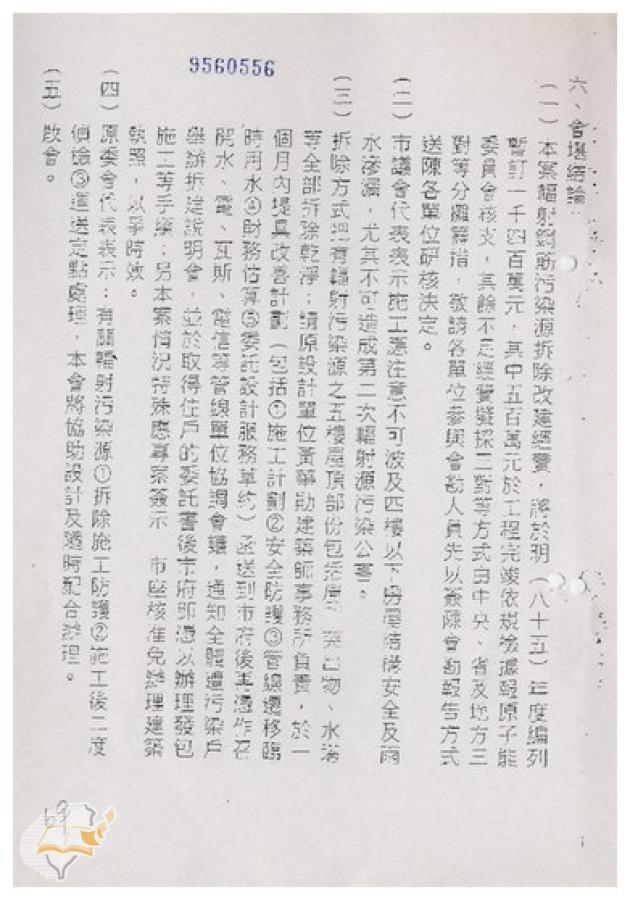 9560556
六、會堪結論：
（一）本案輻射鋼筋污染源拆除改建經費，將於明（八十五）年度編列
暫訂一千四百萬元，其中五百萬元於工程完竣依規檢據報原子能
委員會核支，其餘不足經費擬採三對等方式由中央、省及地方三
對等分攤籌措，敬請各單位參與會勘人員先以簽陳會勘報告方式
送陳各單位研核決定。
（二）市議會代表表示施工應注意不可波及四樓以下房屋結構安全及雨
水滲漏，尤其不可造成第二次輻射源污染公害。
（三）拆除方式把有輻射污染源之五樓屋頂部份包括 突出物、水塔
等全部拆除乾淨；請原設計單位黃華勛建築師事務所負責，於一
個月內提具改善計劃（包括①施工計劃②安全防護③管線遷移臨
時用水④財務估算⑤委託設計服務草約）函送到市府後再憑作召
開水、電、瓦斯、電信等管線單位協調會議，通知全體遭污染戶
舉辦拆建說明會，並於取得住戶的委託書後市府即憑以辦理發包
施工等手續；另本案情況特殊應專案簽示 市座核准免辦理建築
執照，以爭時效。
（四）原委會代表表示：有關輻射污染源①拆除施工防護②施工後二度
偵檢③運送定點處理，本會將協助設計及隨時配合辦理。
（五）散會。
69